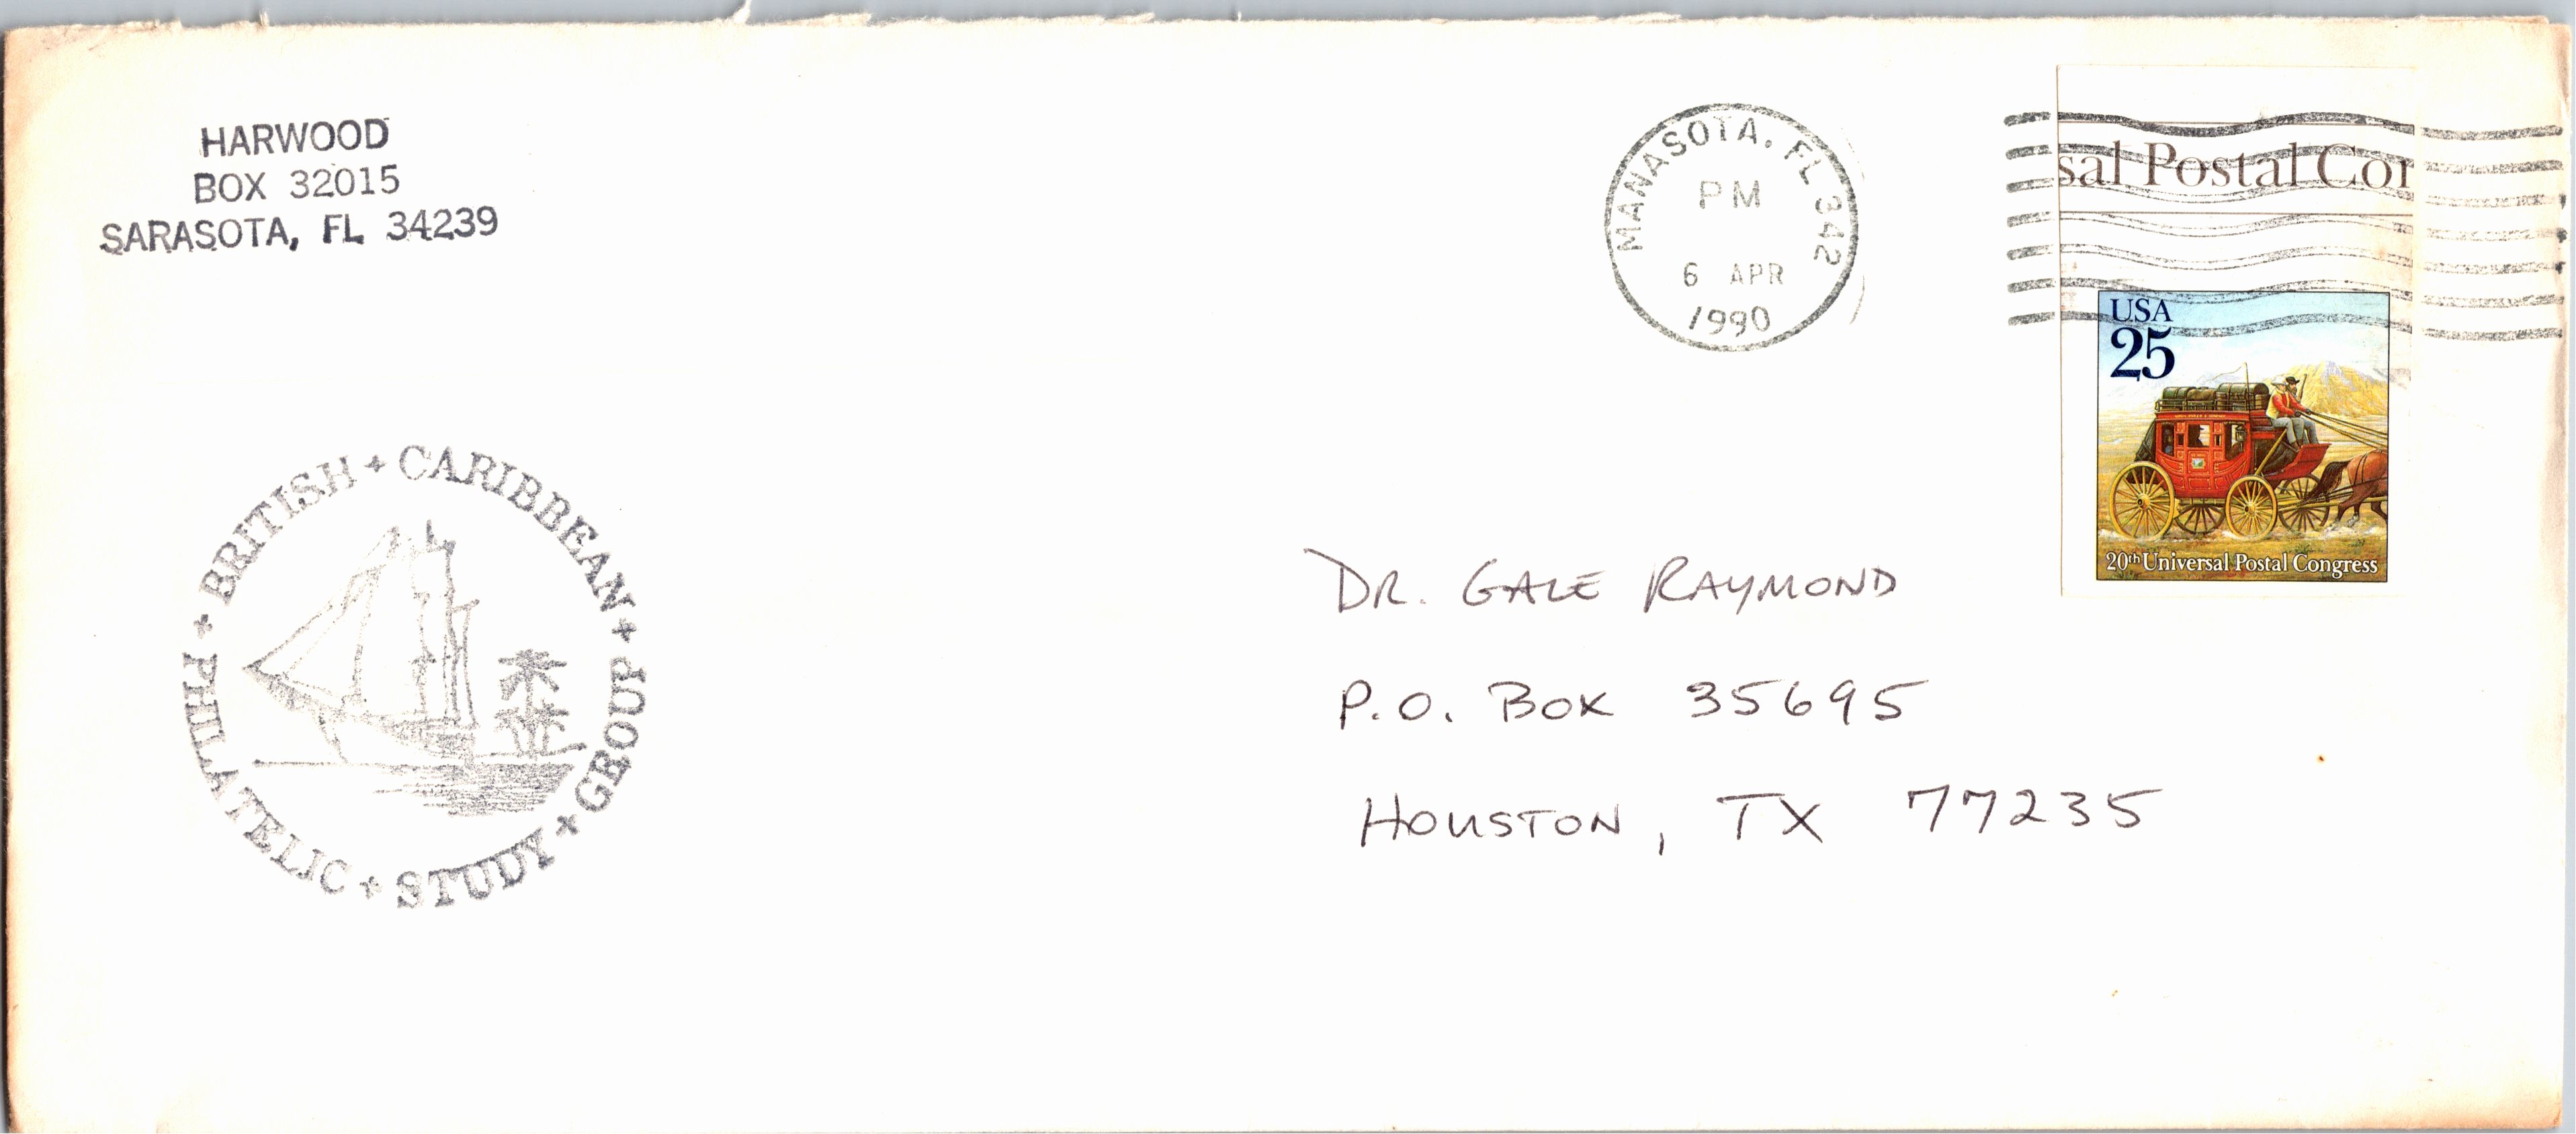 HARWOOD
BOX 32015
SARASOTA, FL 34239
MANASOTA, FL 342
PM
6 APR
1990
sal Postal Con
USA
25
20th Universal Postal Congress
BRITISH + CARIBBEAN +
PHILATELIC + STUDY + GROUP +
DR. GALE RAYMOND
P.O. BOX 35695
HOUSTON, TX 77235